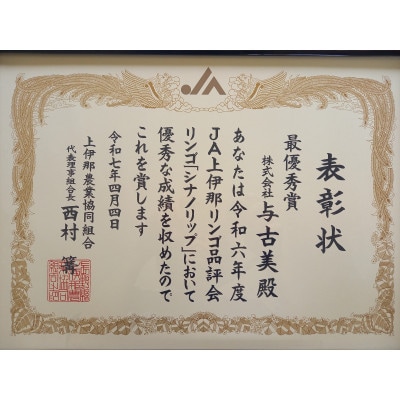 表彰状
最優秀賞
株式会社 与古美殿
あなたは令和六年度
JA上伊那リンゴ品評会
リンゴ「シナノリップ」において
優秀な成績を収めたので
これを賞します
令和七年四月四日
上伊那農業協同組合
代表理事組合長 西村 篝